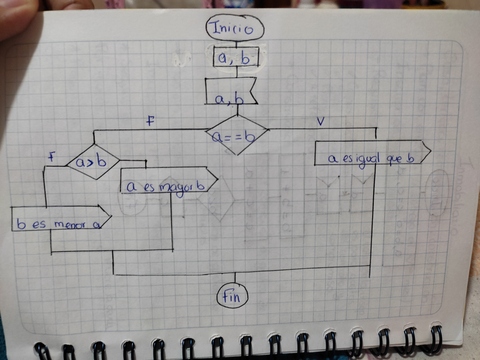 Inicio
a, b
a, b
F
a==b
V
F
a>b
a es mayor b
a es igual que b
b es menor a
Fin